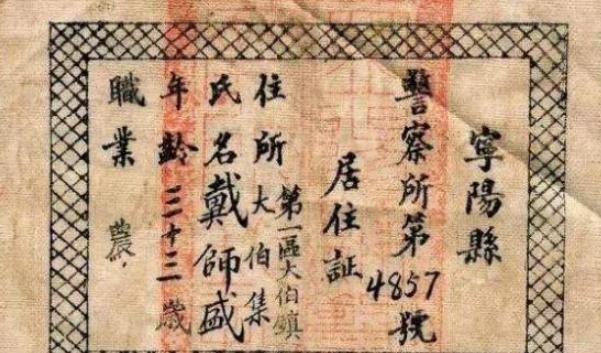 寧陽縣
警察所第4857號
居住証
第一區大伯鎮
住所大伯集
氏名戴師盛
年齡三十三歲
職業農